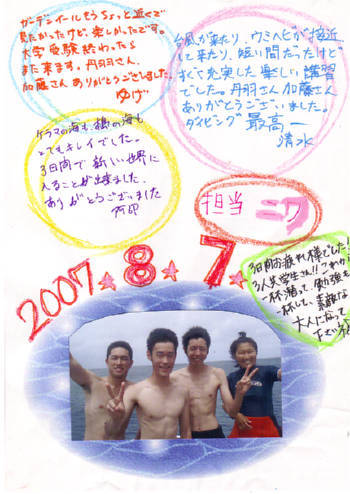 ガーデンイールもうちょっと近くで
見たかったけど、楽しかったです。
大学受験終わったら
また来ます。丹羽さん、
加藤さんありがとうございました。
ゆげ
台風が来たり、ウミヘビが接近
して来たり、短い間だったけど
すごく充実した楽しい講習
でした。丹羽さん加藤さん
ありがとうございました。
ダイビング最高ー
清水
ケラマの海も、横の海も
とてもキレイでした。
3日間で新しい世界に
入ることが出来ました
ありがとうございました
担当 ニワ
2007.8.7
3日間お疲れ様でした!
3人共学生さん!!これから
一杯潜って、勉強も
一杯して、素敵な
大人になって
下さいネ